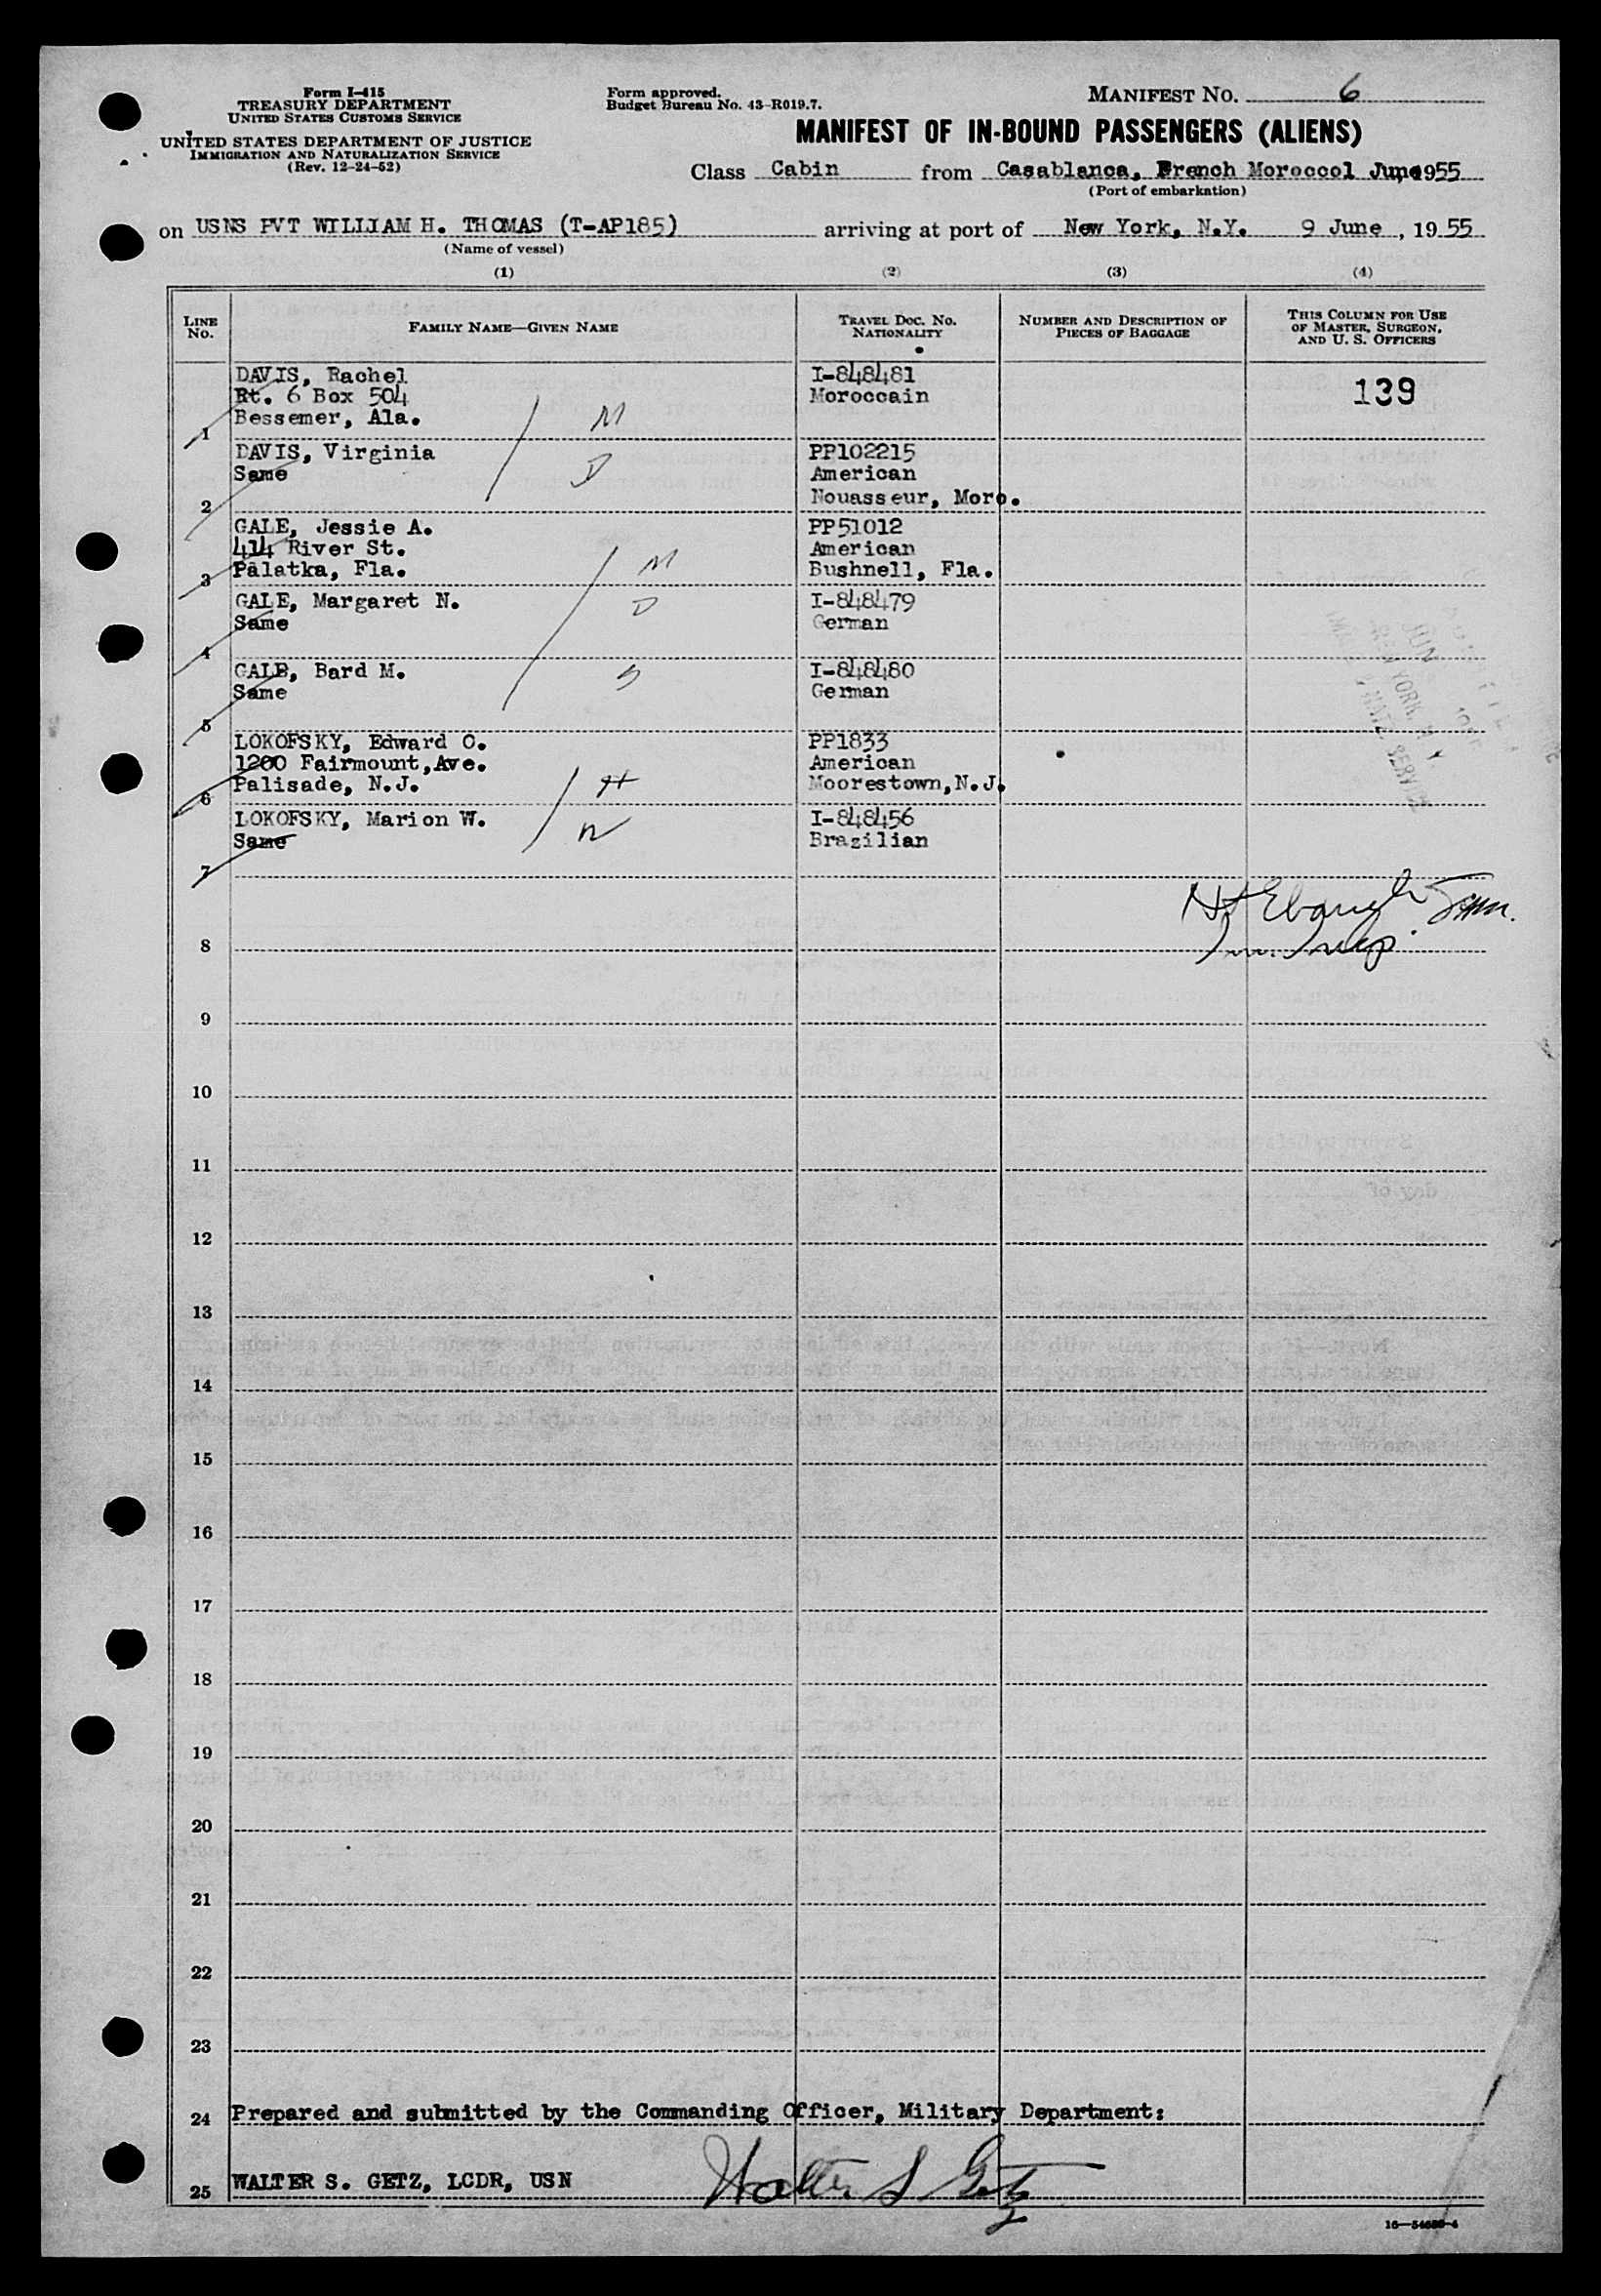 Form I-415
TREASURY DEPARTMENT
UNITED STATES CUSTOMS SERVICE
UNITED STATES DEPARTMENT OF JUSTICE
IMMIGRATION AND NATURALIZATION SERVICE
(Rev. 12-24-52)
Form approved.
Budget Bureau No. 43-R019.7.
MANIFEST NO. 6
MANIFEST OF IN-BOUND PASSENGERS (ALIENS)
Class Cabin from Casablanca, French Morocco1 June1955
(Port of embarkation)
on USNS PVT WILLIAM H. THOMAS (T-AP185) arriving at port of New York, N.Y. 9 June, 1955
(Name of vessel)
(1) (2) (3) (4)
LINE NO. FAMILY NAME—GIVEN NAME TRAVEL DOC. NO. NATIONALITY NUMBER AND DESCRIPTION OF PIECES OF BAGGAGE THIS COLUMN FOR USE OF MASTER, SURGEON, AND U. S. OFFICERS
DAVIS, Rachel I-848481 139
Rt. 6 Box 504 Moroccain
1 Bessemer, Ala. M
DAVIS, Virginia PP102215
Same D American
2 Nouasseur, Moro.
GALE, Jessie A. PP51012
414 River St. American
3 Palatka, Fla. M Bushnell, Fla.
GALE, Margaret N. D I-848479
Same German
4
GALE, Bard M. S I-848480
Same German
5
LOKOFSKY, Edward C. PP1833
1200 Fairmount,Ave. American
6 Palisade, N.J. H Moorestown,N.J.
LOKOFSKY, Marion W. W I-848456
Same Brazilian
7
Ebaugh
8 Imm. Insp.
9
10
11
12
13
14
15
16
17
18
19
20
21
22
23
24 Prepared and submitted by the Commanding Officer, Military Department:
25 WALTER S. GETZ, LCDR, USN Walter S Getz